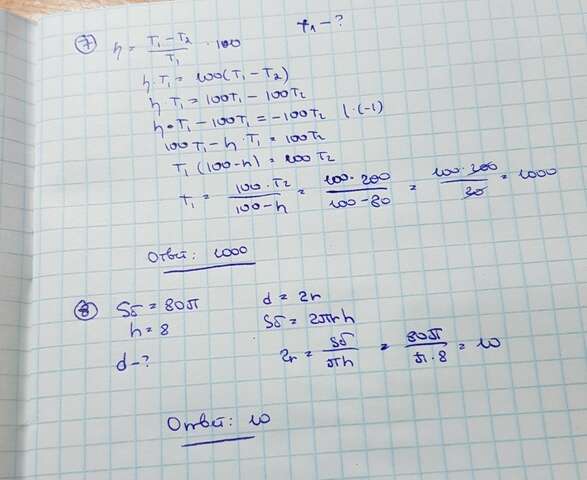 7 η = (T₁ - T₂)/T₁ · 100    T₁ - ?
η · T₁ = 100(T₁ - T₂)
η T₁ = 100T₁ - 100T₂
η · T₁ - 100T₁ = -100T₂ | ·(-1)
100T₁ - η · T₁ = 100T₂
T₁ (100 - η) = 100 T₂
T₁ = (100 · T₂)/(100 - η) = (100 · 200)/(100 - 80) = (100 · 200)/20 = 1000
Ответ: 1000
8 Sб = 80π    d = 2r
h = 8    Sб = 2πrh
d - ?    2r = Sб/(πh) = 80π/(π · 8) = 10
Ответ: 10